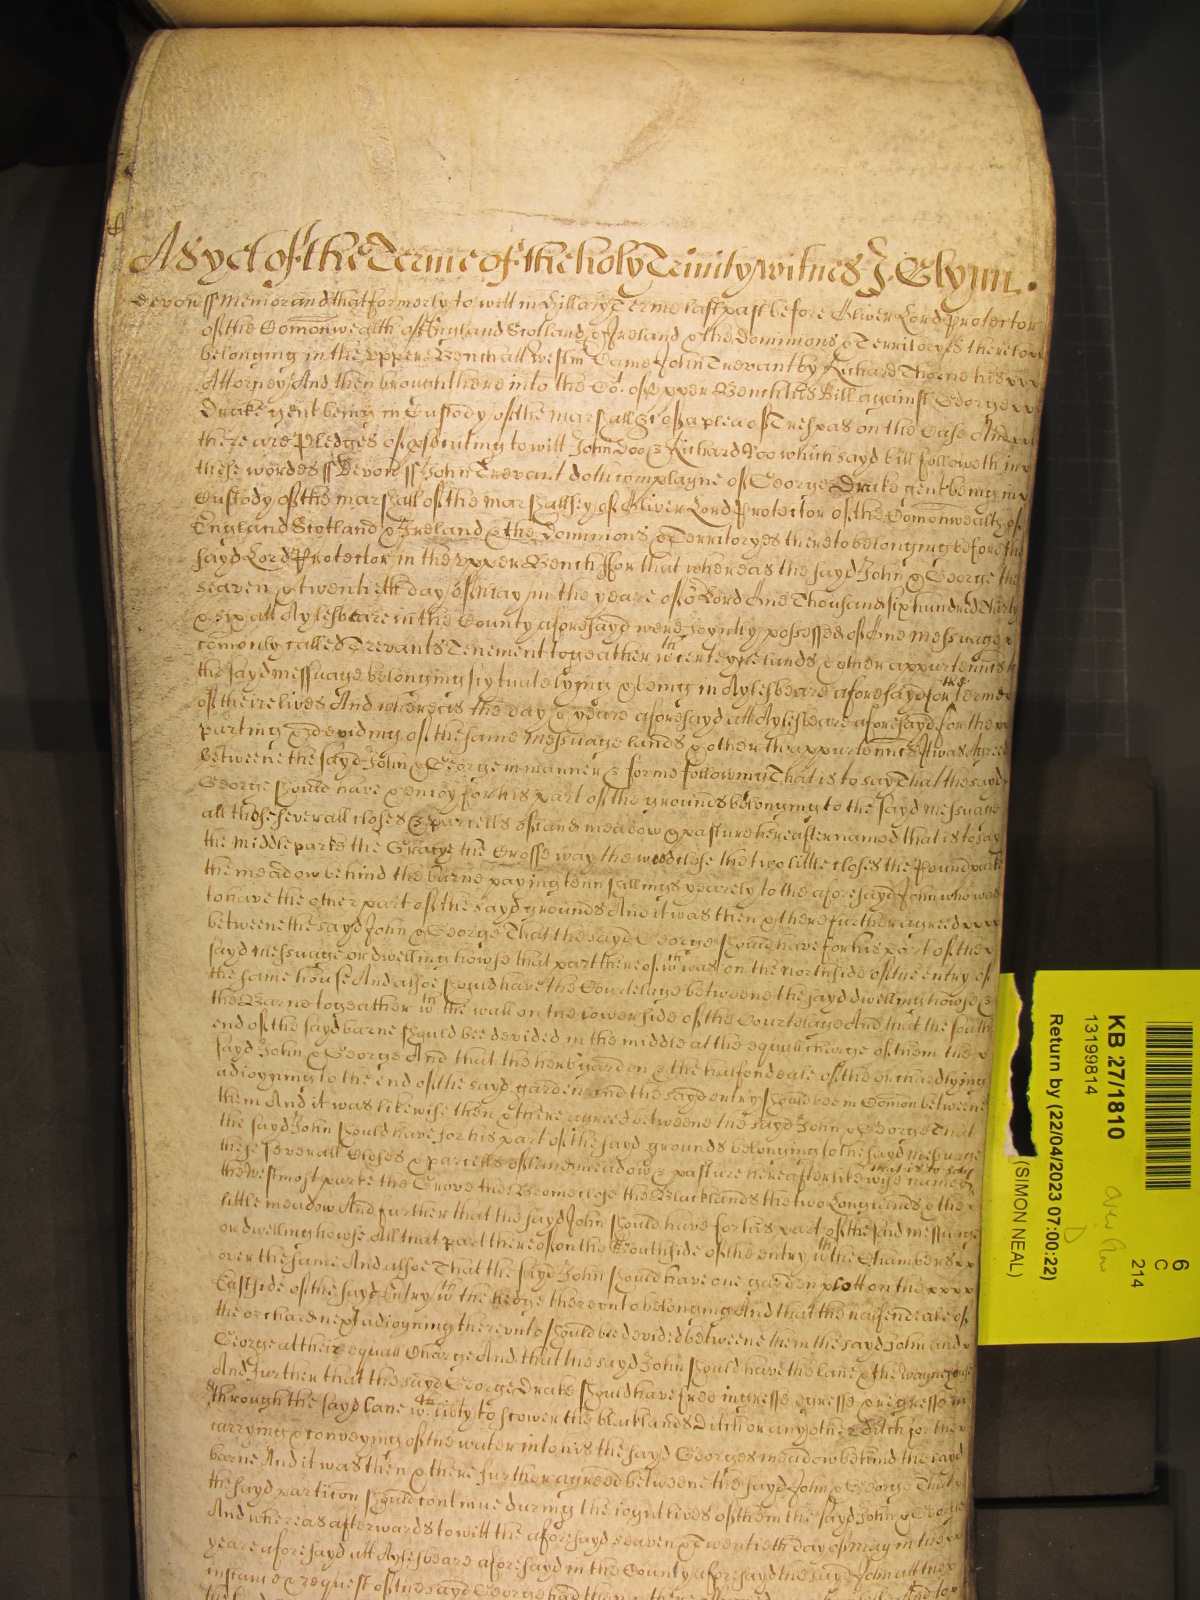 As yet of the Terme of the holy Trinity witnes J Glynn.
Devon ss Memorand that formerly to witt in Hillary Terme last past before Oliver Lord Protector
of the Comonwealth of England Scotland & Ireland & the Dominions & Territoryes thereto
belonging in the Upper Bench att Westm Came John Trevant by Richard Thorne his
Attorney And then brought here into the Co. of Upper Bench his Bill against George
Drake gent being in Custody of the marshall &c of a plea of Trespas on the Case And
there are Pledges of psecuting to witt John Doo & Richard Roo which sayd bill followeth in
these wordes ss Devon ss John Trevant doth complayne of George Drake gent being in
Custody of the marshall of the marshallsey of Oliver Lord Protector of the Comonwealth of
England Scotland & Ireland & the Dominions & Territoryes thereto belonging before the
sayd Lord Protector in the Upper Bench ffor that whereas the sayd John & George the
seaven & twentieth day of may in the yeare of o Lord One Thousand six hundred Thirty
& six att Aylesbeare in the County aforesayd were joyntly possessed of One messuage
comonly called Trevants Tenement togeather wth certeyne lands & other appurtennces to
the sayd messuage belonging scytuate lying & being in Aylesbeare aforesayd for the terme
of their lives And whereas the day & yeare aforesayd att Aylesbeare aforesayd for the
parting & deviding of the same messuage lands & other thappurtennces It was Agreed
betweene the sayd John & George in manner & forme following That is to say That the sayd
George should have & enioy for his part of the grounds belonging to the sayd messuage
all those severall closes & parcells of land meadow & pasture hereafter named that is to say
the middle parke the the Crosse way the wood close the two little closes the Pound parke
the meadow behind the barne paying tenn shillings yearely to the aforesayd John who was
to have the other part of the sayd grounds And it was then & there further agreed
betweene the sayd John & George That the sayd George should have for his part of the
sayd messuage or dwelling howse that part thereof wch was on the northside of the entry of
the same house And alsoe should have the Courtelage betweene the sayd dwelling howse &
the Barne togeather wth the wall on the lower side of the Courtelage And that the south
end of the sayd barne should bee devided in the middle at the equall charge of them the
sayd John & George And that the herbgarden & the halfendeale of the orchard lying
adioyning to the end of the sayd garden and the sayd entry should bee in Comon betweene
them And it was likewise then & there agreed betweene the sayd John & George That
the sayd John should have for his part of the sayd grounds belonging to the sayd messuage
these severall Closes & parcells of land meadow & pasture hereafter likewise named that is to say
the westmost parke the Grove the Broomeclose the Blacklands the two Longlands & the
little meadow And further that the sayd John should have for his part of the said messuage
or dwelling howse All that part thereof on the Southside of the entry wth the Chambers
over the same And alsoe That the sayd John should have one garden plott on the
Eastside of the sayd Entry wth the hedge thereunto belonging And that the halfendeale of
the orchard next adioyning thereunto should bee devided betweene them the sayd John and
George at their equall Charge And that the sayd John should have the lane & the
And further that the sayd George Drake should have free ingresse egresse & regresse in
through the sayd lane wth libty to scower the blacklands Ditch or any other Ditch for the
carrying & conveying of the water into his the sayd Georges meadow behind the sayd
barne And it was then & there further agreed betweene the sayd John & George That
the sayd particon should continue during the ioynt lives of them the sayd John & George
And whereas afterwards to witt the aforesayd seaven & twentieth day of may in the
yeare aforesayd att Aylesbeare aforesayd in the County aforesayd the sayd John att the
instance & request of the sayd George had then & there And for
KB 27/1810
13199814
Return by (22/04/2023 07:00:22)
(SIMON NEAL)
6
C
214
D